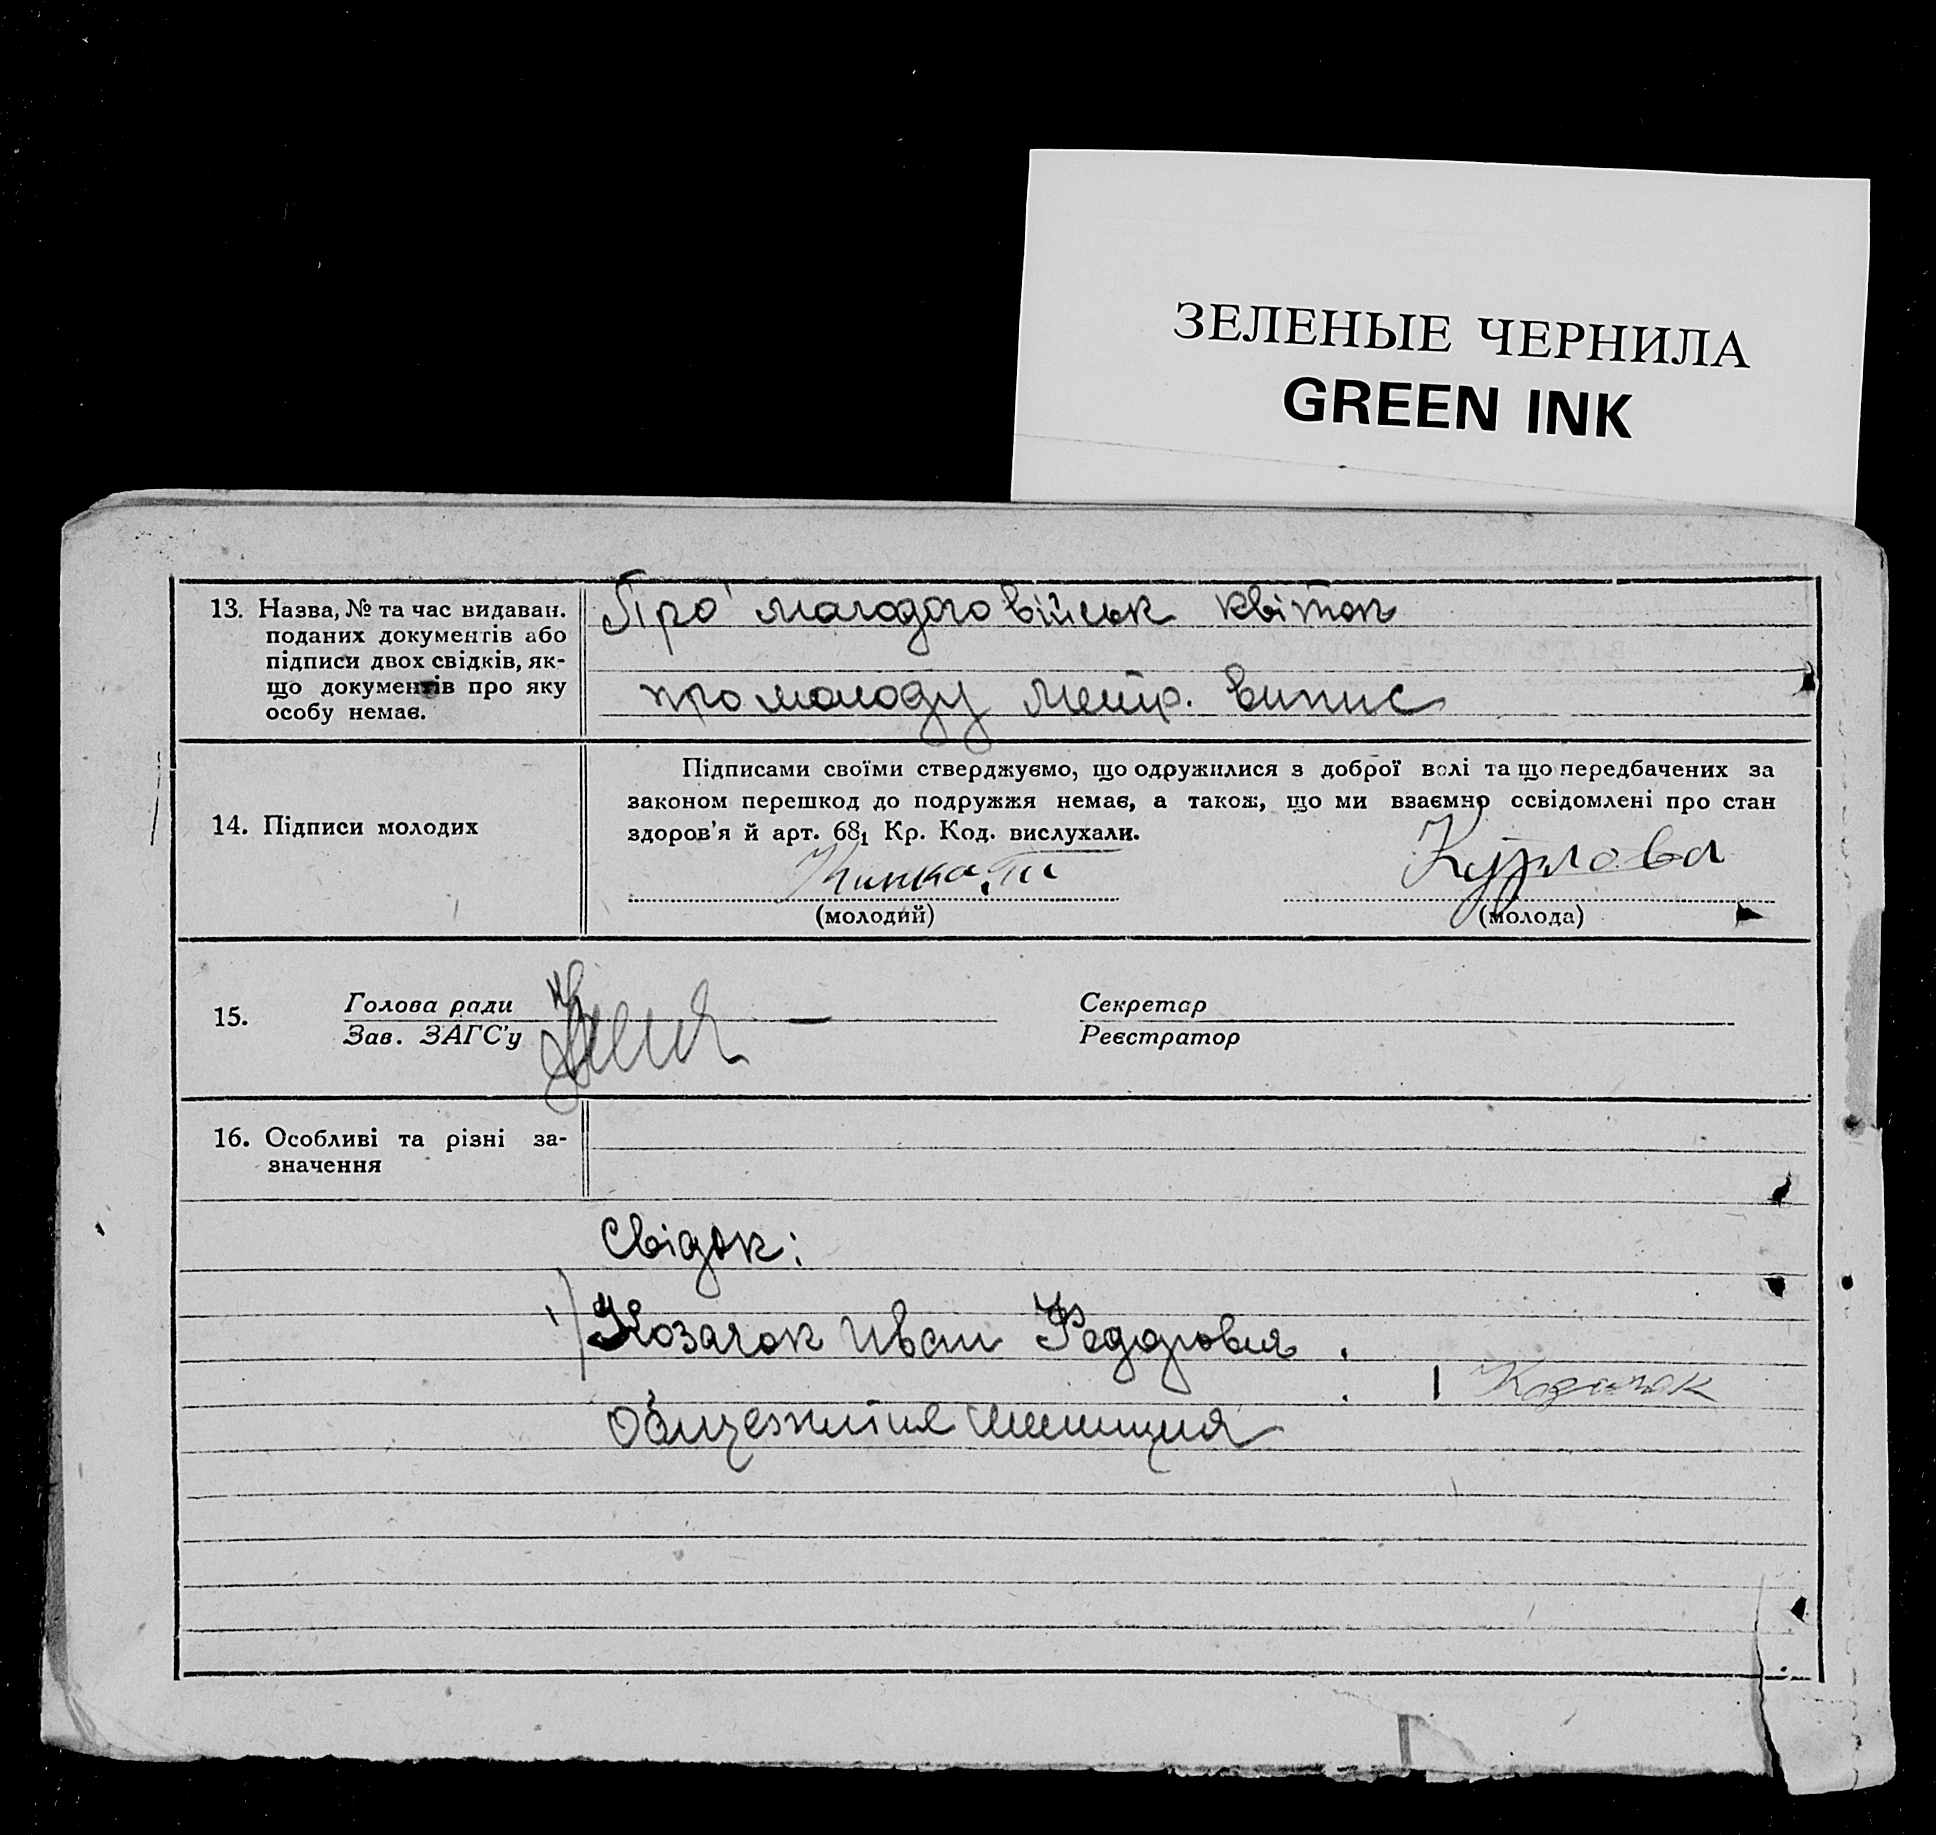 ЗЕЛЕНЫЕ ЧЕРНИЛА
GREEN INK
13. Назва, № та час видаван.
поданих документів або
підписи двох свідків, як-
що документів про яку
особу немає.
Про молодого військ квіток
про молоду метр. випис
14. Підписи молодих
Підписами своїми стверджуємо, що одружилися з доброї волі та що передбачених за
законом перешкод до подружжя немає, а також, що ми взаємно освідомлені про стан
здоров'я й арт. 68₁ Кр. Код. вислухали.
Курлова
(молодий)
(молода)
15.
Голова ради
Зав. ЗАГС'у
Секретар
Реєстратор
16. Особливі та різні за-
значення
Свідок:
1) Козачок Иван Федоровия.
Козачок
Общежития милиция